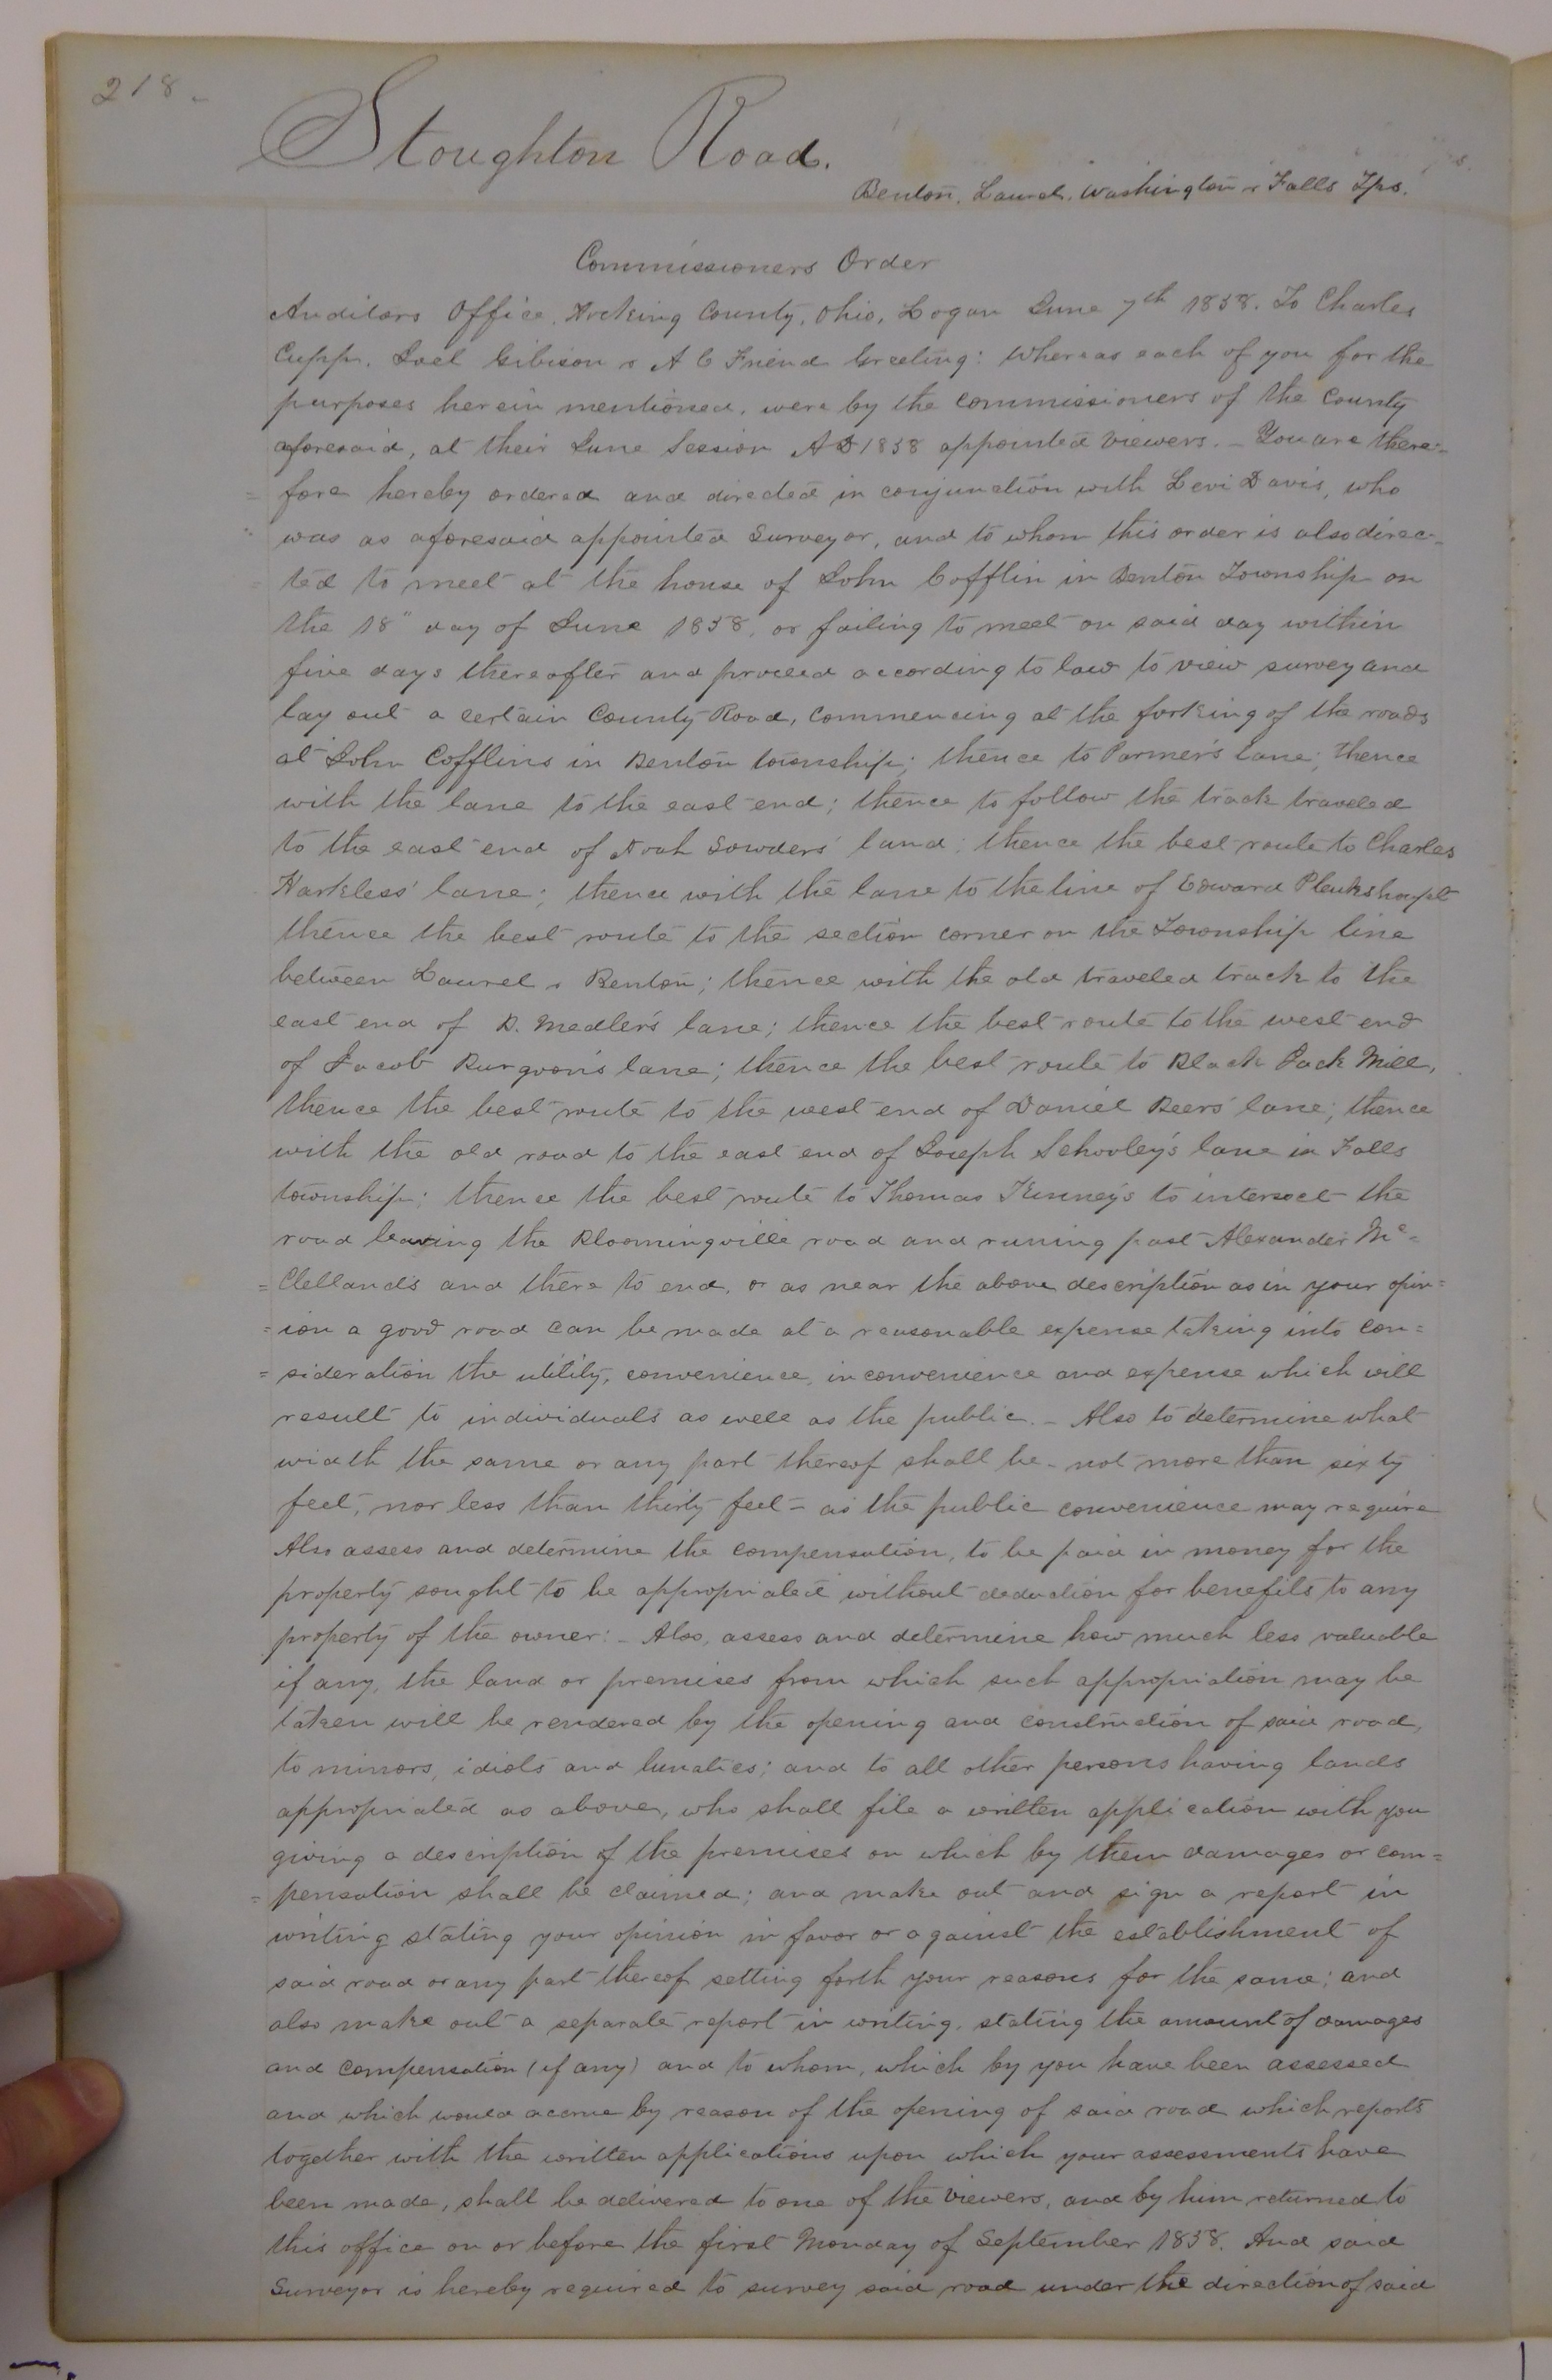 218.
Stoughton Road.
Benton, Laurel, Washington & Falls Tps.
Commissioners Order
Auditors Office, Hocking County, Ohio, Logan June 7th 1858. To Charles
Cupp, Joel Gibison & A C Friend Greeting: Whereas each of you for the
purposes herein mentioned, were by the commissioners of the County
aforesaid, at their June Session AD 1858 appointed viewers. - You are there=
= fore hereby ordered and directed in conjunction with Levi Davis, who
was as aforesaid appointed Surveyor, and to whom this order is also direc=
= ted to meet at the house of John Cofflin in Benton Township on
the 18" day of June 1858, or failing to meet on said day within
five days thereafter and proceed according to law to view survey and
lay out a certain County Road, Commencing at the forking of the roads
at John Cofflins in Benton township; thence to Parmer's lane; thence
with the lane to the east end; thence to follow the track traveled
to the east end of Noah Sowders' land; thence the best route to Charles
Harkless' lane; thence with the lane to the line of Edward Pleukshaupt
thence the best route to the section corner on the Township line
between Laurel & Benton; thence with the old traveled track to the
east end of D. Medler's lane; thence the best route to the west end
of Jacob Burgoon's lane; thence the best route to Black Jack Mill,
thence the best route to the west end of Daniel Beers' lane; thence
with the old road to the east end of Joseph Schooley's lane in Falls
township; thence the best route to Thomas Kinney's to intersect the
road leaving the Bloomingville road and runing past Alexander Mc=
= Clelland's and there to end, or as near the above description as in your opin=
= ion a good road can be made at a reasonable expense taking into con=
= sideration the utility, convenience, inconvenience and expense which will
result to individuals as well as the public. - Also to determine what
width the same or any part thereof shall be - not more than sixty
feet, nor less than thirty feet - as the public convenience may require
Also assess and determine the compensation, to be paid in money for the
property sought to be appropriated without deduction for benefits to any
property of the owner: - Also, assess and determine how much less valuable
if any, the land or premises from which such appropriation may be
taken will be rendered by the opening and construction of said road,
to minors, idiots and lunatics; and to all other persons having lands
appropriated as above, who shall file a written application with you
giving a description of the premises on which by them damages or com=
= pensation shall be claimed; and make out and sign a report in
writing stating your opinion in favor or against the establishment of
said road or any part thereof setting forth your reasons for the same; and
also make out a separate report in writing, stating the amount of damages
and compensation (if any) and to whom, which by you have been assessed
and which would accrue by reason of the opening of said road which reports
together with the written applications upon which your assessments have
been made, shall be delivered to one of the viewers, and by him returned to
this office on or before the first Monday of September 1858. And said
Surveyor is hereby required to survey said road under the direction of said